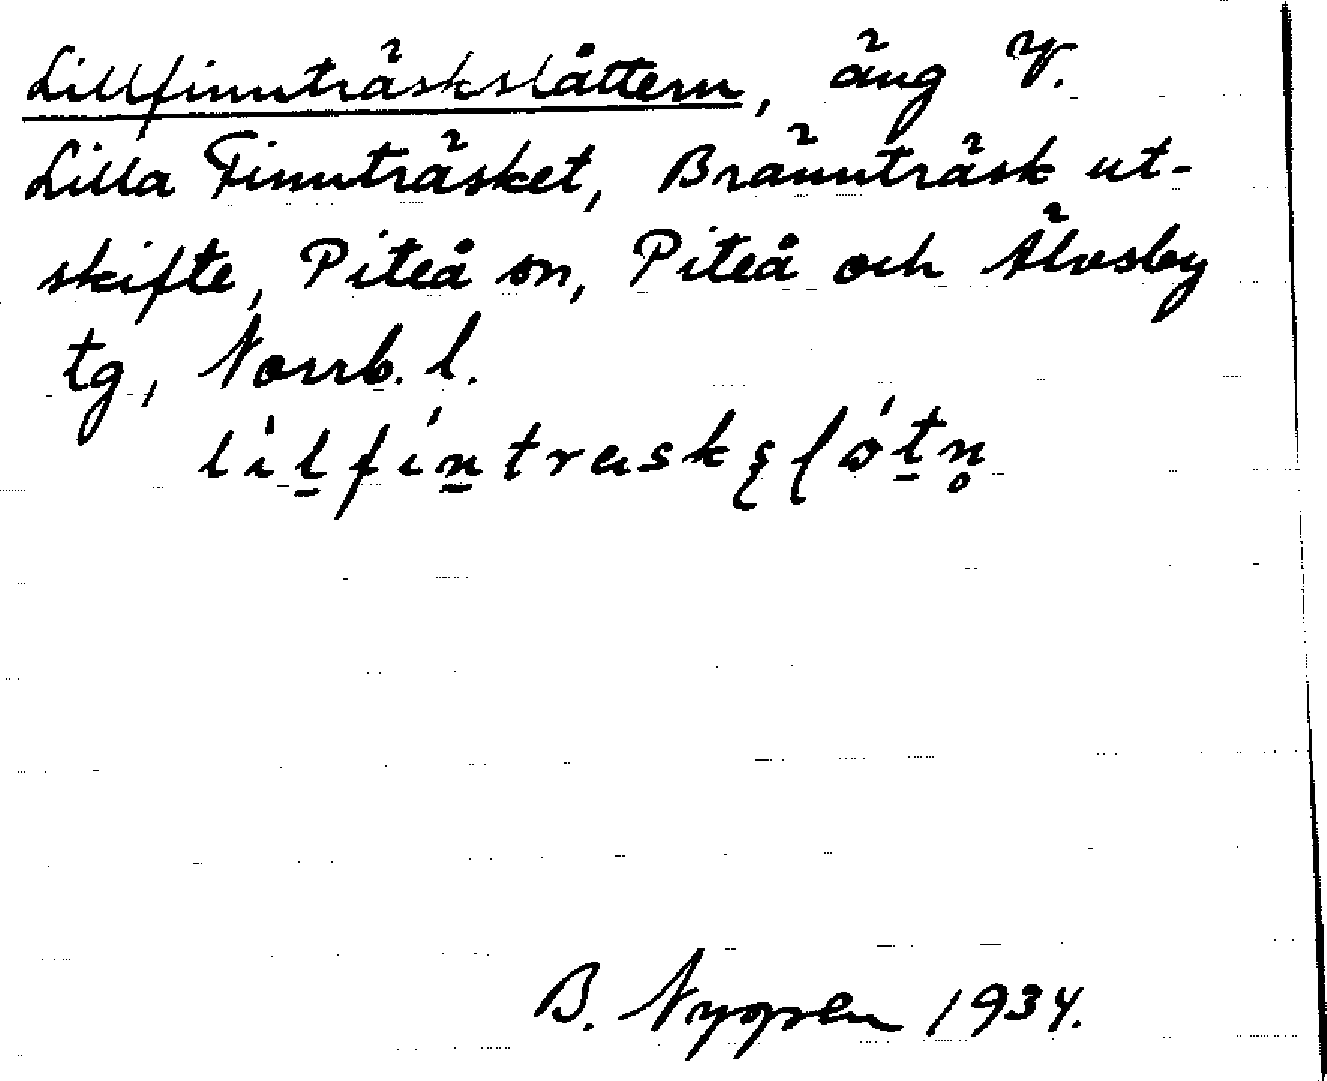 Lillfinnträskslåttern, äng V.
Lilla Finnträsket, Brännträsk ut-
skifte, Piteå sn, Piteå och Älvsby
tg, Norrb. l.
B. Nygren 1934.